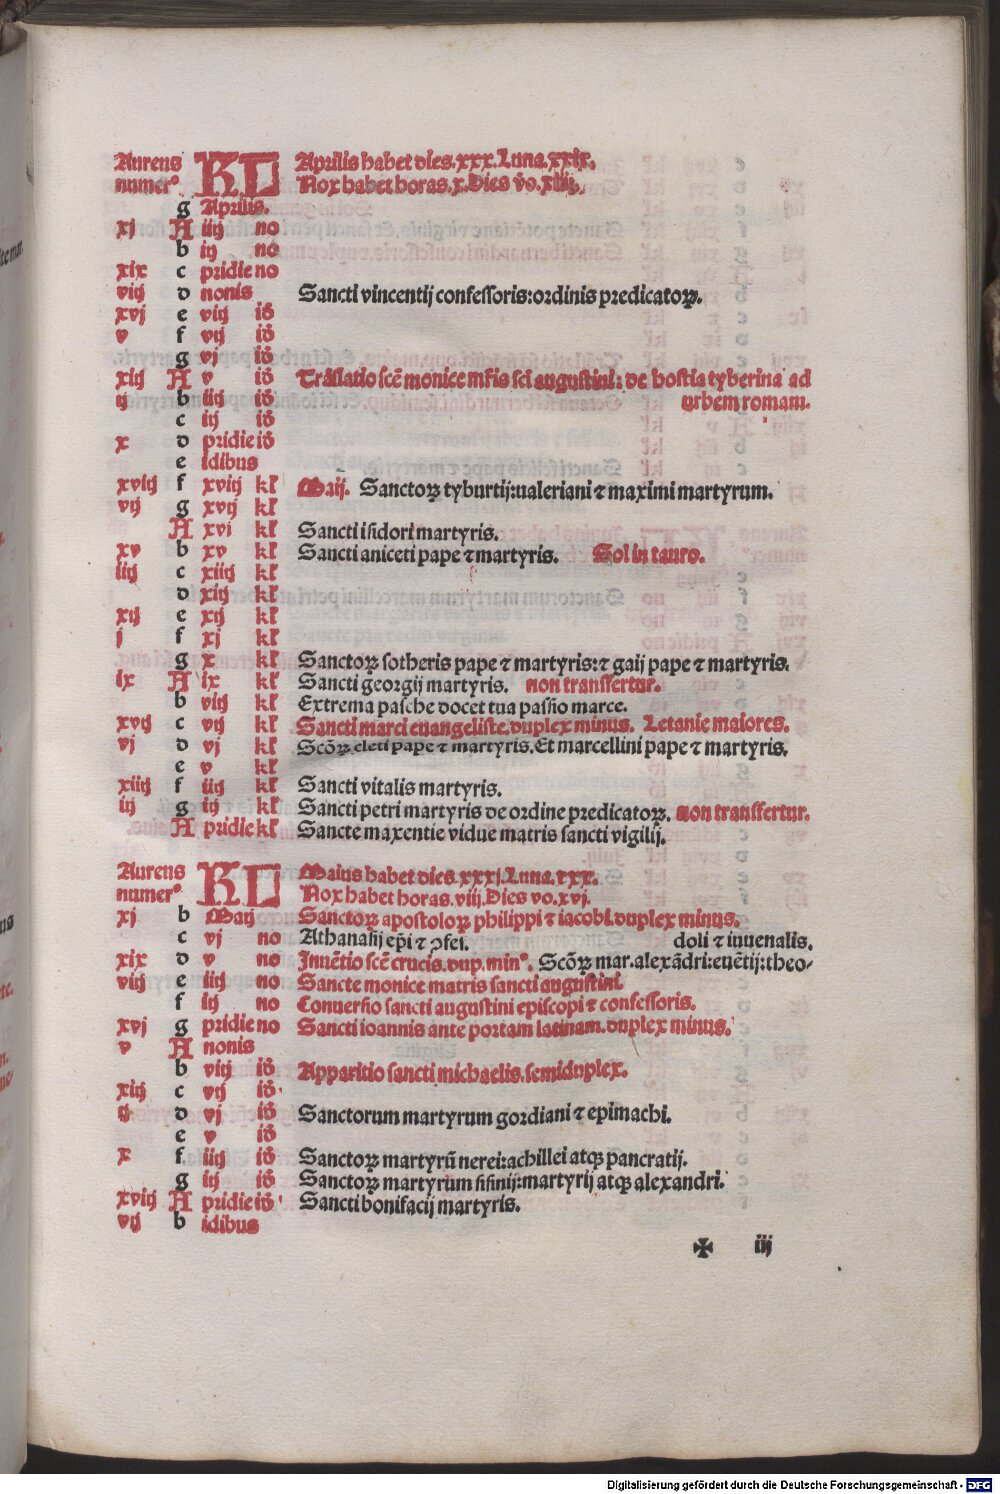 Aureus KL Aprilis habet dies.xxx.Luna.xxix.
numerꝰ Nox habet horas.x.Dies v̄o.xiiij.
g Aprilis.
xj A iiij no
b iij no
xix c pridie no
viij d nonis Sancti vincentij confessoris:ordinis predicatoꝝ.
xvj e viij id̄
v f vij id̄
g vj id̄
xiij A v id̄ Trāslatio scē monice mr̄is sci augustini: de hostia tyberina ad
ij b iiij id̄ vrbem romam.
c iij id̄
x d pridie id̄
e idibus
xviij f xviij kl̄ Maij. Sanctoꝝ tyburtij:ualeriani ⁊ maximi martyrum.
vij g xvij kl̄
A xvi kl̄ Sancti isidori martyris.
xv b xv kl̄ Sancti aniceti pape ⁊ martyris. Sol in tauro.
iiij c xiiij kl̄
d xiij kl̄
xij e xij kl̄
j f xj kl̄
g x kl̄ Sanctoꝝ sotheris pape ⁊ martyris:⁊ gaij pape ⁊ martyris.
ix A ix kl̄ Sancti georgij martyris. non transfertur.
b viij kl̄ Extrema pasche docet tua passio marce.
xvij c vij kl̄ Sancti marci euangeliste.duplex minus. Letanie maiores.
vj d vj kl̄ Scōꝝ cleti pape ⁊ martyris.Et marcellini pape ⁊ martyris.
e v kl̄
xiiij f iiij kl̄ Sancti vitalis martyris.
iij g iij kl̄ Sancti petri martyris de ordine predicatoꝝ. non transfertur.
A pridie kl̄ Sancte maxentie vidue matris sancti vigilij.
Aureus KL Maius habet dies.xxxj.Luna.xxx.
numerꝰ Nox habet horas.viij.Dies vo.xvj.
xj b Maij Sanctoꝝ apostoloꝝ philippi ⁊ iacobi.duplex minus.
c vj no Athanasij ep̄i ⁊ ꝯfes. doli ⁊ iuuenalis.
xix d v no Inuētio scē crucis.dup.minꝰ. Scōꝝ mar.alexādri:euētij:theo-
viij e iiij no Sancte monice matris sancti augustini
f iij no Conuersio sancti augustini episcopi ⁊ confessoris.
xvj g pridie no Sancti ioannis ante portam latinam.duplex minus.
v A nonis
b viij id̄ Apparitio sancti michaelis.semiduplex.
xiij c vij id̄
ij d vj id̄ Sanctorum martyrum gordiani ⁊ epimachi.
e v id̄
x f iiij id̄ Sanctoꝝ martyrū nerei:achillei atqꝫ pancratij.
g iij id̄ Sanctoꝝ martyrum sisinij:martyrij atqꝫ alexandri.
xviij A pridie id̄ Sancti bonifacij martyris.
vij b idibus
✠ iij
Digitalisierung gefördert durch die Deutsche Forschungsgemeinschaft - DFG